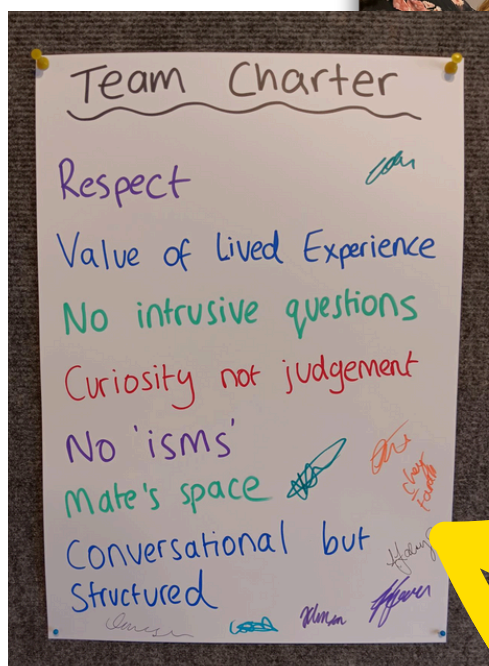 Team Charter
Respect
Value of Lived Experience
No intrusive questions
Curiosity not judgement
No 'isms'
Mate's space
Conversational but
Structured